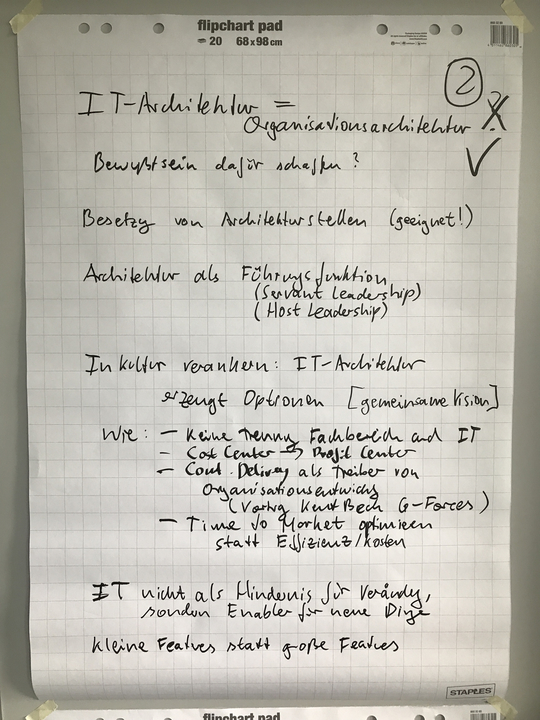 flipchart pad
20 68 x 98 cm
2
IT-Architektur =
Organisationsarchitektur
Bewußtsein dafür schaffen ?
Besetzg von Architekturstellen (geeignet!)
Architektur als Führungsfunktion
(Servant Leadership)
(Host Leadership)
In Kultur verankern: IT-Architektur
erzeugt Optionen [gemeinsame Vision]
Wie: – Keine Trenng Fachbereich and IT
– Cost Center → Profit Center
– Cont. Delivery als Treiber von
Organisationsentwickg
(Vortrag Kent Beck G-Forces)
– Time to Market optimieren
statt Effizienz/Kosten
IT nicht als Hindernis für Verändg,
sondern Enabler für neue Dinge
Kleine Features statt große Features
STAPLES
flipchart pad